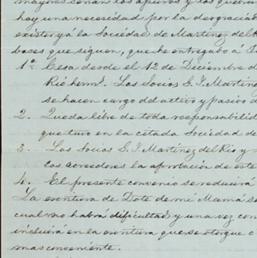 mayores son los apuros y los quebran
hay una necesidad por la desgracia
existir ya la Sociedad de Martinez del
bases que siguen, que he entregado á
1º Cesa desde el 1º de Diciembre d
Rio hermº. Los Socios G. I. Martinez
se hacen cargo del activo y pasivo d
2. Queda libre de toda responsabilid
que tuvo en la citada Sociedad de
3. Los Socios G. I. Martinez del Rio y
los acreedores la aprobacion de este
4. El presente convenio se reducirá
La escritura de Dote de mi Mamá se
cual no habrá dificultad, y una vez con
incluirá en la escritura que se otorgue c
mas conveniente.